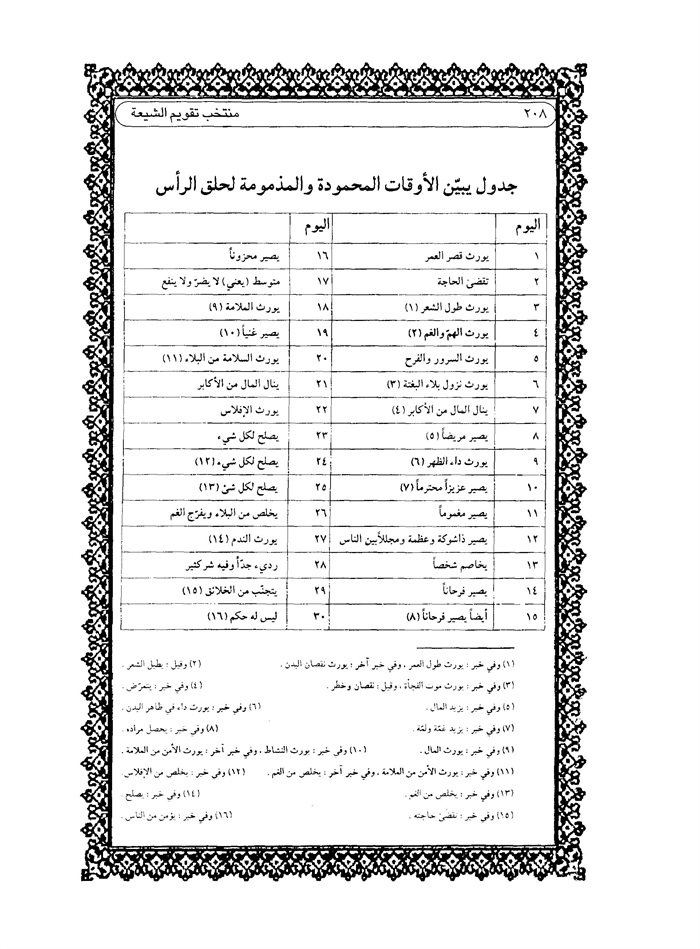 ٢٠٨ منتخب تقويم الشيعة
جدول يبيّن الأوقات المحمودة والمذمومة لحلق الرأس
اليوم اليوم
١ يورث قصر العمر ١٦ يصير محزوناً
٢ تقضىٰ الحاجة ١٧ متوسط (يعني) لا يضرّ ولا ينفع
٣ يورث طول الشعر (١) ١٨ يورث الملامة (٩)
٤ يورث الهمّ والغم (٢) ١٩ يصير غنياً (١٠)
٥ يورث السرور والفرح ٢٠ يورث السلامة من البلاء (١١)
٦ يورث نزول بلاء البغتة (٣) ٢١ ينال المال من الأكابر
٧ ينال المال من الأكابر (٤) ٢٢ يورث الإفلاس
٨ يصير مريضاً (٥) ٢٣ يصلح لكل شيء
٩ يورث داء الظهر (٦) ٢٤ يصلح لكل شيء (١٢)
١٠ يصير عزيزاً محترماً (٧) ٢٥ يصلح لكل شئ (١٣)
١١ يصير مغموماً ٢٦ يخلص من البلاء ويفرّج الغم
١٢ يصير ذاشوكة وعظمة ومجللاً بين الناس ٢٧ يورث الندم (١٤)
١٣ يخاصم شخصاً ٢٨ رديء جدّاً وفيه شر كثير
١٤ يصير فرحاناً ٢٩ يتجنّب من الخلائق (١٥)
١٥ أيضاً يصير فرحاناً (٨) ٣٠ ليس له حكم (١٦)
(١) وفي خبر : يورث طول العمر ، وفي خبر آخر : يورث نقصان البدن . (٢) وقيل : يطيل الشعر .
(٣) وفي خبر : يورث موت الفجأة ، وقيل : نقصان وخطر . (٤) وفي خبر : يتعرّض .
(٥) وفي خبر : يزيد المال . (٦) وفي خبر : يورث داء في ظاهر البدن .
(٧) وفي خبر : يزيد غمّه ولمّه . (٨) وفي خبر : يحصل مراده .
(٩) وفي خبر : يورث المال . (١٠) وفي خبر : يورث النشاط ، وفي خبر آخر : يورث الأمن من العلامة .
(١١) وفي خبر : يورث الأمن من العلامة ، وفي خبر آخر : يخلص من الغم . (١٢) وفي خبر : يخلص من الإفلاس .
(١٣) وفي خبر : يخلص من الغم . (١٤) وفي خبر : يصلح .
(١٥) وفي خبر : تقضىٰ حاجته . (١٦) وفي خبر : يؤمن من الناس .